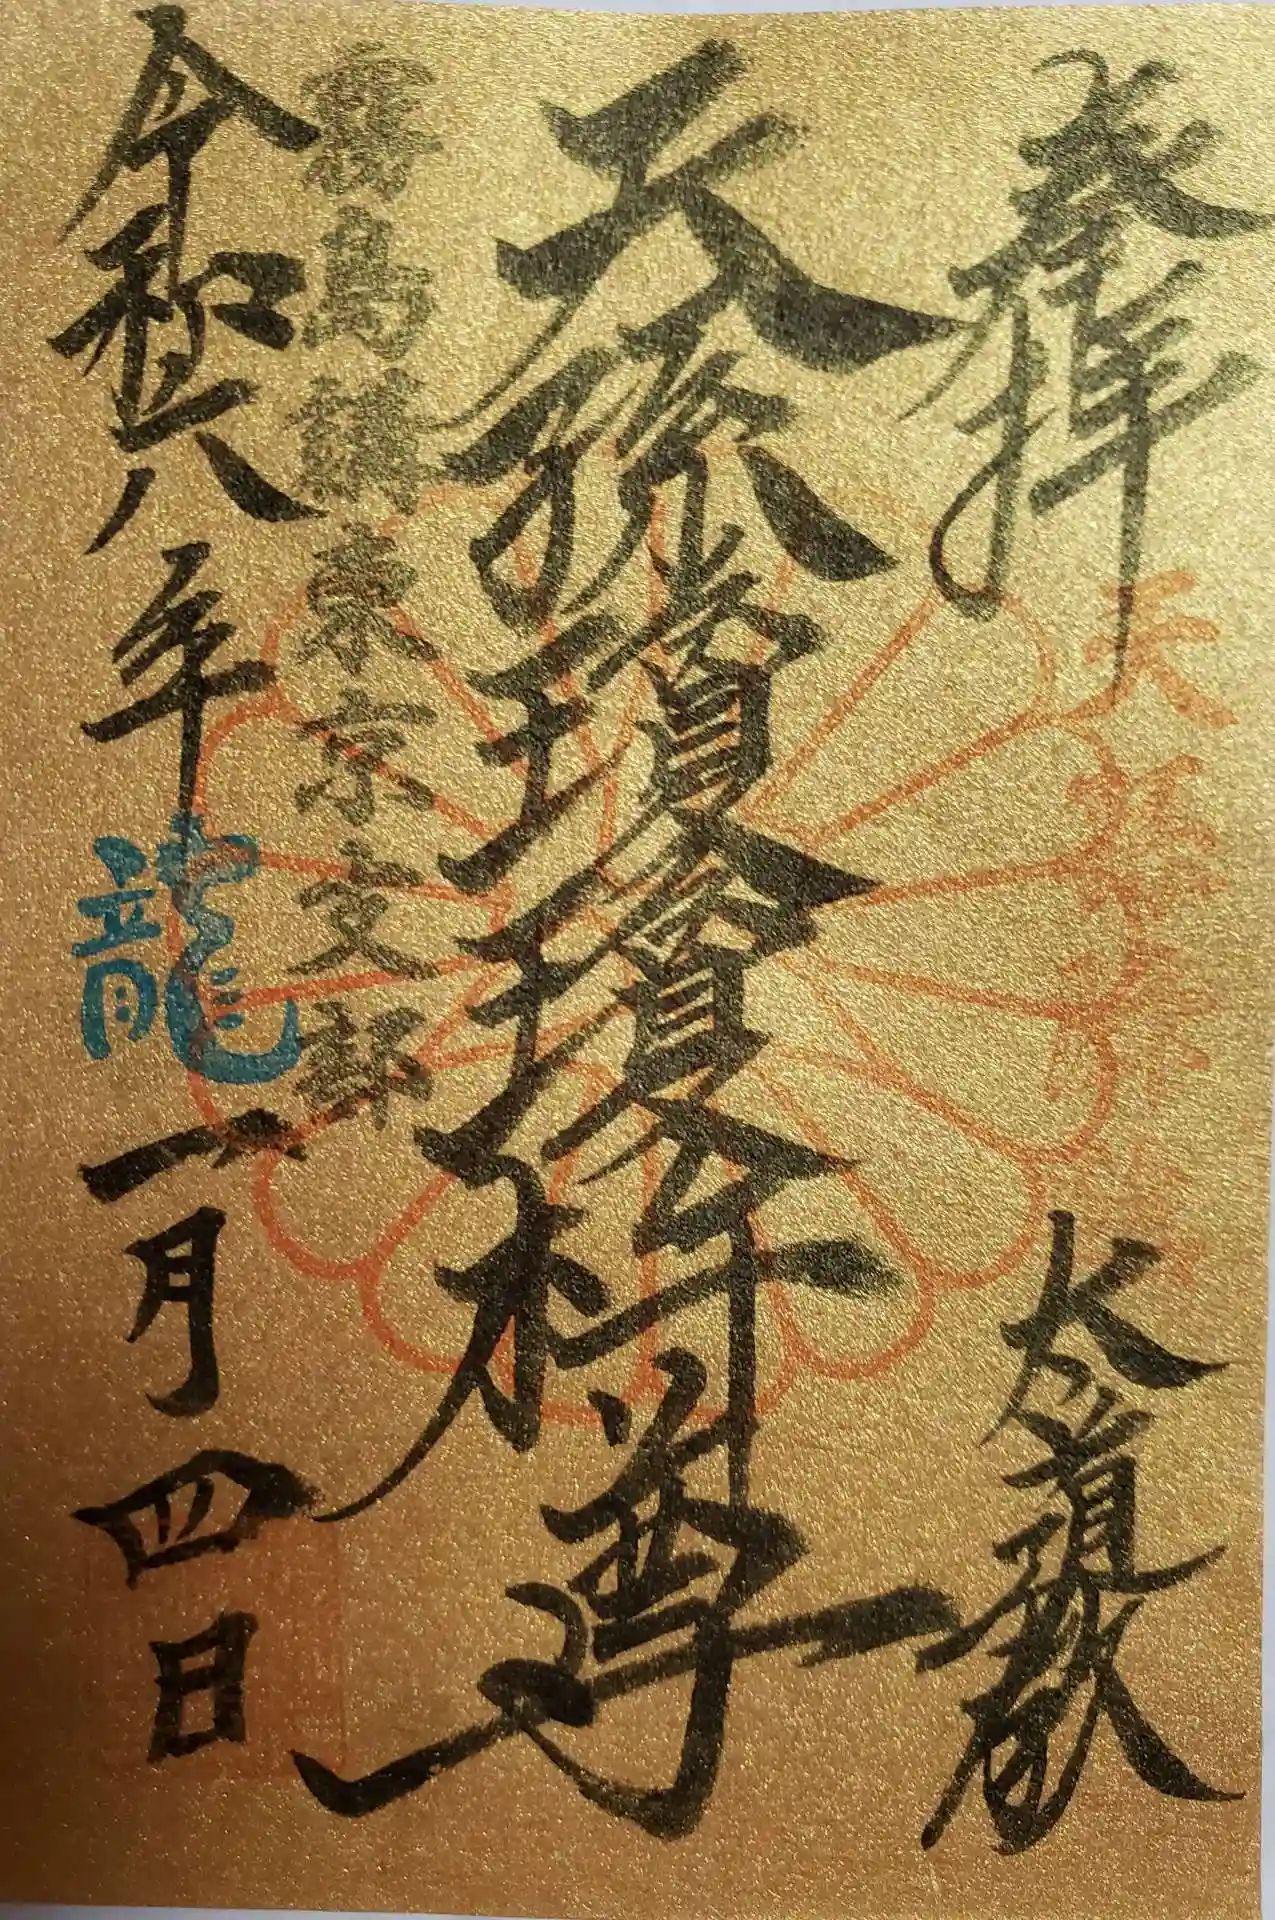 奉拝
天孫瓊瓊杵尊
霧島講東京支部
令和六年龍一月四日